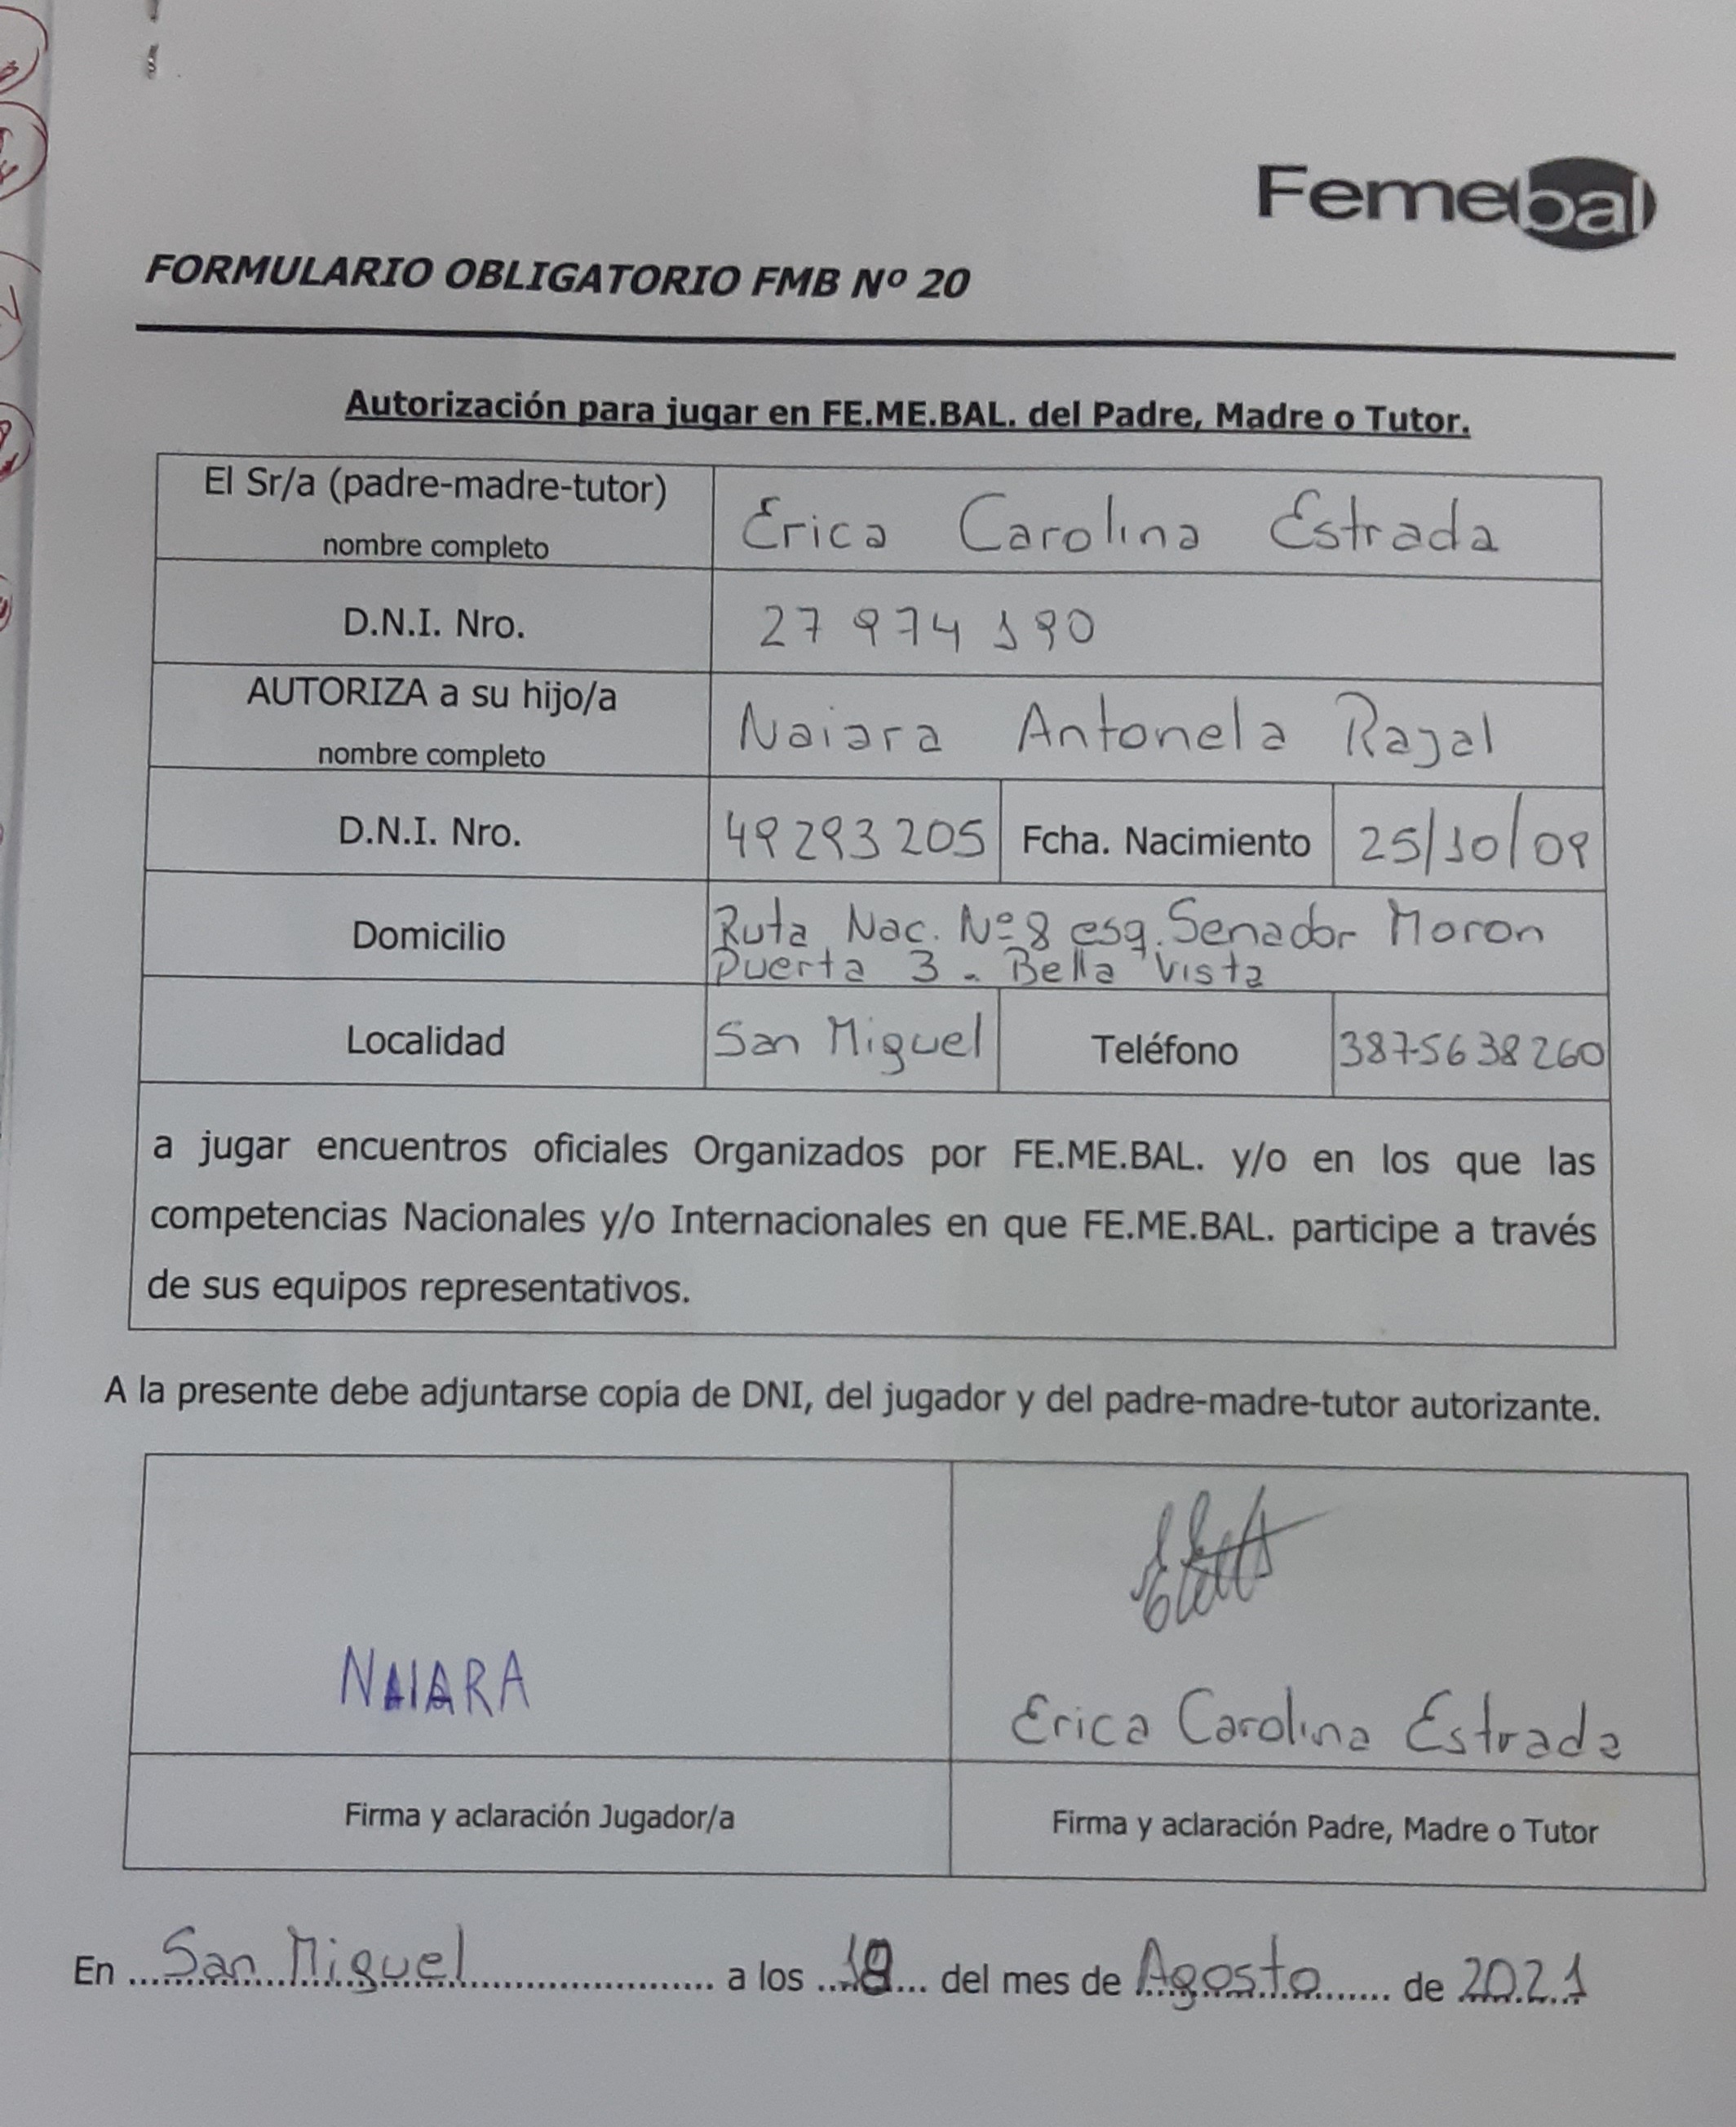 Femebal
FORMULARIO OBLIGATORIO FMB Nº 20
Autorización para jugar en FE.ME.BAL. del Padre, Madre o Tutor.
El Sr/a (padre-madre-tutor)
nombre completo
Erica Carolina Estrada
D.N.I. Nro.
27 974 190
AUTORIZA a su hijo/a
nombre completo
Naiara Antonela Rajal
D.N.I. Nro.
49293205
Fcha. Nacimiento
25/10/09
Domicilio
Ruta Nac. Nº 8 esq. Senador Moron
Puerta 3 - Bella Vista
Localidad
San Miguel
Teléfono
3875638260
a jugar encuentros oficiales Organizados por FE.ME.BAL. y/o en los que las
competencias Nacionales y/o Internacionales en que FE.ME.BAL. participe a través
de sus equipos representativos.
A la presente debe adjuntarse copia de DNI, del jugador y del padre-madre-tutor autorizante.
NAIARA
Erica Carolina Estrada
Firma y aclaración Jugador/a
Firma y aclaración Padre, Madre o Tutor
En San Miguel a los del mes de Agosto de 2021